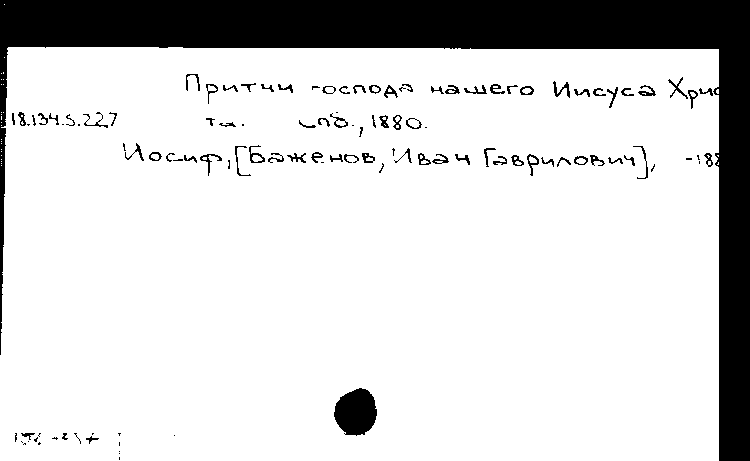 Притчи господа нашего Иисуса Хрис
18.134.5.227 та. Спб., 1880.
Иосиф, [Баженов, Иван Гаврилович], -188